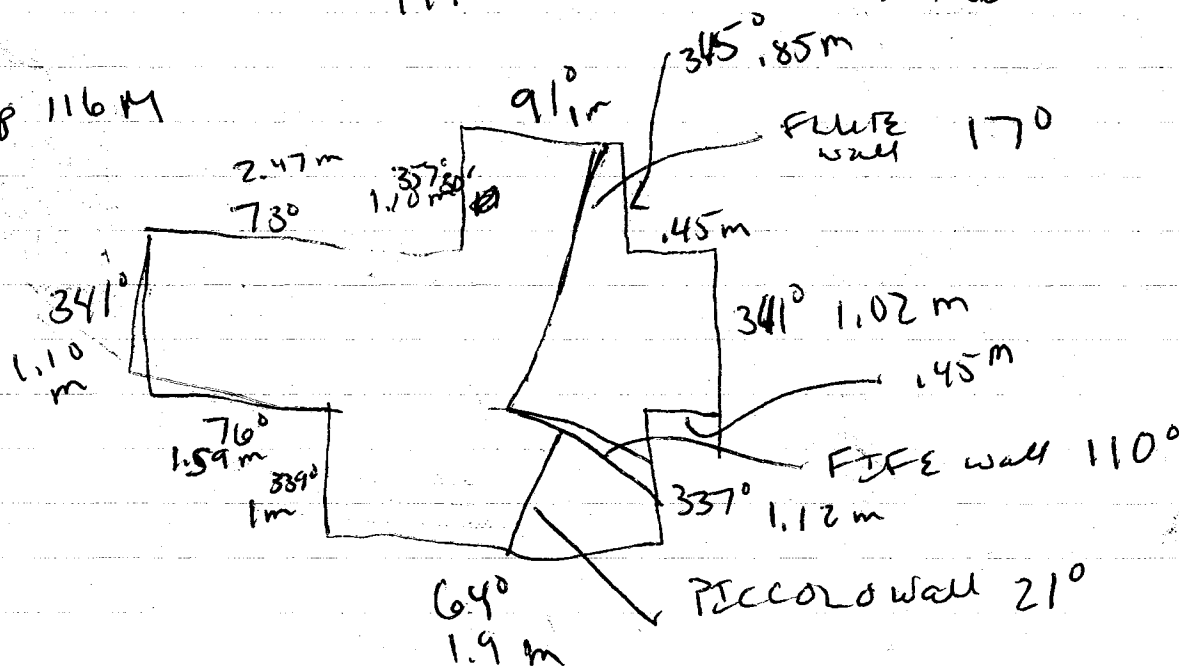 345° .85m
91° 1m
116 M
FLUTE wall 17°
2.47m
73°
357°30'
1.10m
.45m
341°
1.10 m
341° 1.02 m
.45m
76°
1.59m
339°
1m
FIFE wall 110°
337° 1.12 m
64°
1.9 m
PICCOLO wall 21°